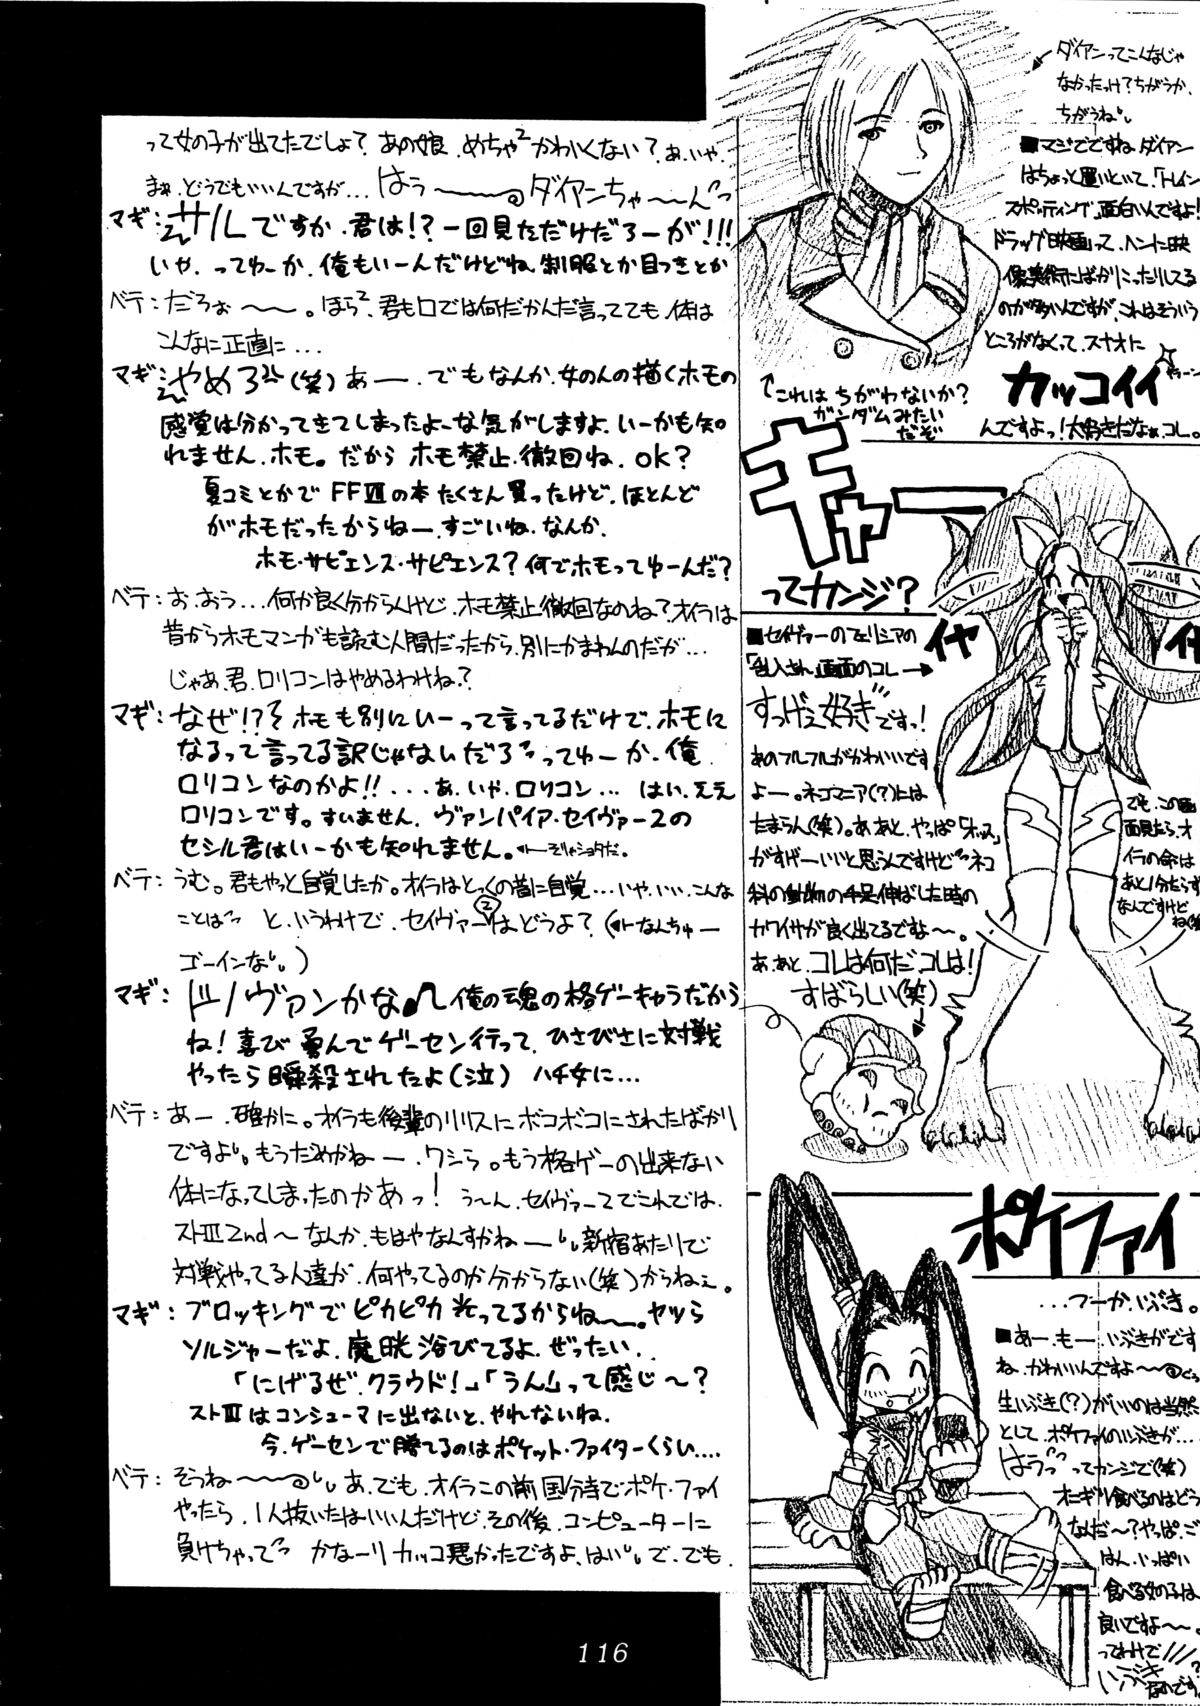 って女の子が出てたでしょ？あの娘、めちゃ²かわいくない？あ、いや、
まぁ、どうでもいいんですが…はぅ〜〜〜ダイアンちゃ〜〜ん
マギ：サルですか、君は!?一回見ただけだろーが!!!
いや、ってゆーか、俺もいーんだけどね、制服とか目つきとか
ベテ：だろぉ〜〜。ほら²、君も口では何だかんだ言ってても、体は
こんなに正直に…
マギ：やめろ(笑)あー、でもなんか、女のんの描くホモの
感覚は分かってきてしまったよーな気がしますよ、いーかも知
れません、ホモ。だから ホモ禁止、撤回ね、OK？
夏コミとかで FFⅦの本たくさん買ったけど、ほとんど
がホモだったからねー、すごいね、なんか、
ホモ・サピエンス・サピエンス？何でホモってゆーんだ？
ベテ：お、おぅ…何か良く分からんけど、ホモ禁止撤回なのね？オイラは
昔からホモマンガも読む人間だったから、別にかまわんのだが…
じゃあ、君、ロリコンはやめるわけね？
マギ：なぜ!?ホモも別にいーって言ってるだけで、ホモに
なるって言ってる訳じゃないだろってゆーか、俺
ロリコンなのかよ!!…あ、いや、ロリコン…はい、ええ
ロリコンです。すいません、ヴァンパイア・セイヴァー2の
セシル君はいーかも知れません。←そりゃショタだ。
ベテ：うむ。君もやっと自覚したか。オイラはとっくの昔に自覚…いや、いい、こんな
ことは と、いうわけで、セイヴァー②はどうよ？（←なんちゅー
ゴーインな）
マギ：ドノヴァンかな♪俺の魂の格ゲーキャラだから
ね！喜び勇んでゲーセン行って、ひさびさに対戦
やったら瞬殺されたよ（泣）ハチ女に…
ベテ：あー、確かに。オイラも後輩のリリスにボコボコにされたばかり
ですよ。もうだめかねー、ワシら。もう格ゲーの出来ない
体になってしまったのかあっ！う〜ん、セイヴァー2でこれでは、
ストⅢ2nd〜なんか、もはやなんすかねー、新宿あたりで
対戦やってる人達が、何やってるのか分からない(笑)からねぇ。
マギ：ブロッキングでピカピカ光ってるからね〜〜。ヤツら
ソルジャーだよ、魔晄浴びてるよ、ぜったい、
「にげるぜ、クラウド！」「うん」って感じ〜？
ストⅢはコンシューマに出ないと、やれないね、
今、ゲーセンで勝てるのはポケット・ファイターくらい….
ベテ：そうね〜〜〜あ、でも、オイラこの前国分寺でポケ・ファイ
やったら、1人抜いたはいいんだけど、その後、コンピューターに
負けちゃって かな〜り カッコ悪かったですよ、はい、で、でも、
116
ダイアンってこんなじゃ
なかったっけ？ちがうか、
ちがうね
■マジでですね、ダイアン
はちょっと置いといて、「トレイン
スポッティング」、面白いんですよ！
ドラッグ映画って、ヘンに映
像美術にばかりこったりしてる
のが多いんですが、これはそういう
ところがなくって、スナオに
カッコイイ
んですよっ！大好きだなぁ、コレ。
↑これは ちがわないか？
ガンダムみたい
だぞ
キャー
ってカンジ？
■セイヴァーのフェリシアの
「乱入され」画面のコレ→
イヤ
イヤ
すっげえ好きですっ！
あのフルフルがかわいいです
よー。ネコマニア(?)には
たまらん(笑)。あ、あと、やっぱ「ホッス」
がすげーいいと思うんですけど ネコ
科の動物の手足伸ばした時の
カワイサが良く出てるですよ〜。
あ、あと、コレは何だ、コレは！
すばらしい(笑)
でも、この画
面見たら、オ
イラの命は
あと1分たらず
なんですけど
ね(笑)
ポケファイ
…つーか、いぶき。
■あー、もー、いぶきがです
ね、かわいいんですよ〜〜
生いぶき(?)がいいのは当然
として、ポケファイのいぶきが…
はぅっ ってカンジで(笑)
オニギリ食べるのはどう
なんだ〜？やっぱ、ご
はん、いっぱい
食べる女の子は
良いですよ〜〜。
ってわけで///
いぶき